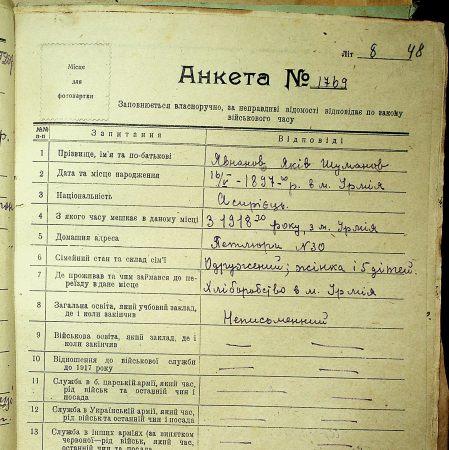 Літ 8 48
Місце
для
фотокартки
Анкета № 1769
Заповнюється власноручно, за неправдиві відомості відповідає по закону
військового часу
№№ п-п Запитання Відповіді
1 Прізвище, ім'я та по-батькові Явнанов Яків Шуманов
2 Дата та місце народження 16/X - 1897-го р. в м. Урмія
3 Національність Асирієць.
4 З якого часу мешкає в даному місці З 1918го року, з м. Урмія
5 Домашня адреса Петлюри №30
6 Сімейний стан та склад сім'ї Одружений; жінка і 5 дітей.
7 Де проживав та чим займався до переїзду в дане місце Хліборобство в м. Урмія
8 Загальна освіта, який учбовий заклад,
де і коли закінчив Неписьменний
9 Військова освіта, який заклад, де і
коли закінчив — —
10 Відношення до військової служби
до 1917 року — —
11 Служба в б. царській армії, який час,
рід військ та останній чин і
посада — —
12 Служба в Українській армії, який час,
рід військ та останній чин і посада — —
13 Служба в інших арміях (за винятком
червоної—рід військ, який час,
останній чин та посада — —